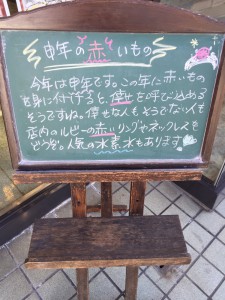 申年の赤いもの
今年は申年です。この年に赤いもの
を身に付けると、倖せを呼び込める
そうですね。倖せな人もそうでない人も
店内のルビーの赤いリングやネックレスを
どうぞ。人気の水素水もあります。